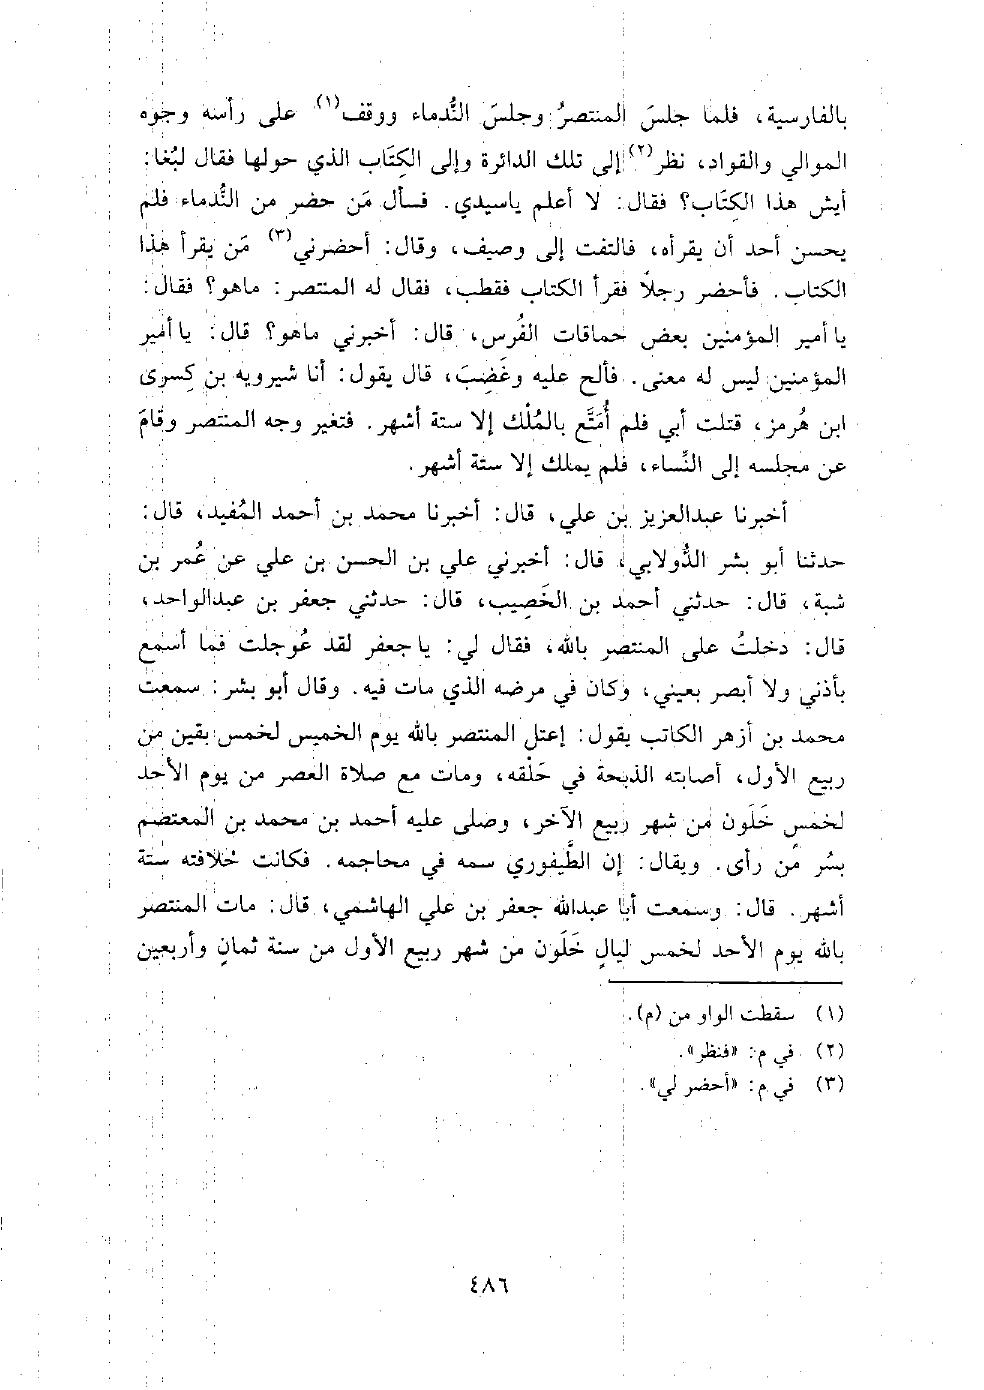 بالفارسية، فلما جلسَ المنتصرُ وجلسَ النُّدماء ووقف(١) على رأسه وجوه
الموالي والقواد، نظر(٢) إلى تلك الدائرة وإلى الكِتَاب الذي حولها فقال لبُغا:
أيش هذا الكِتَاب؟ فقال: لا أعلم ياسيدي. فسأل مَن حضر من النُّدماء فلم
يحسن أحد أن يقرأه، فالتفت إلى وصيف، وقال: أحضرني(٣) مَن يقرأ هذا
الكتاب. فأحضر رجلاً فقرأ الكتاب فقطب، فقال له المنتصر: ماهو؟ فقال:
يا أمير المؤمنين بعض حماقات الفُرس، قال: أخبرني ماهو؟ قال: يا أمير
المؤمنين ليس له معنى. فألح عليه وغَضِبَ، قال يقول: أنا شيرويه بن كِسرى
ابن هُرمز، قتلت أبي فلم أُمَتَّع بالمُلْك إلا ستة أشهر. فتغير وجه المنتصر وقامَ
عن مجلسه إلى النِّساء، فلم يملك إلا ستة أشهر.
أخبرنا عبدالعزيز بن علي، قال: أخبرنا محمد بن أحمد المُفيد، قال:
حدثنا أبو بشر الدُّولابي، قال: أخبرني علي بن الحسن بن علي عن عُمر بن
شبة، قال: حدثني أحمد بن الخَصِيب، قال: حدثني جعفر بن عبدالواحد،
قال: دخلتُ على المنتصر بالله، فقال لي: يا جعفر لقد عُوجلت فما أسمع
بأذني ولا أبصر بعيني، وكان في مرضه الذي مات فيه. وقال أبو بشر: سمعت
محمد بن أزهر الكاتب يقول: إعتل المنتصر بالله يوم الخميس لخمس بقين من
ربيع الأول، أصابته الذبحة في حَلْقه، ومات مع صلاة العصر من يوم الأحد
لخمسٍ خَلَون من شهر ربيع الآخر، وصلى عليه أحمد بن محمد بن المعتصم
بسُر مَن رأى. ويقال: إن الطَّيفوري سمه في محاجمه. فكانت خلافته ستة
أشهر. قال: وسمعت أبا عبدالله جعفر بن علي الهاشمي، قال: مات المنتصر
بالله يوم الأحد لخمس ليالٍ خَلَون من شهر ربيع الأول من سنة ثمانٍ وأربعين
(١) سقطت الواو من (م).
(٢) في م: «فنظر».
(٣) في م: «أحضر لي».
٤٨٦